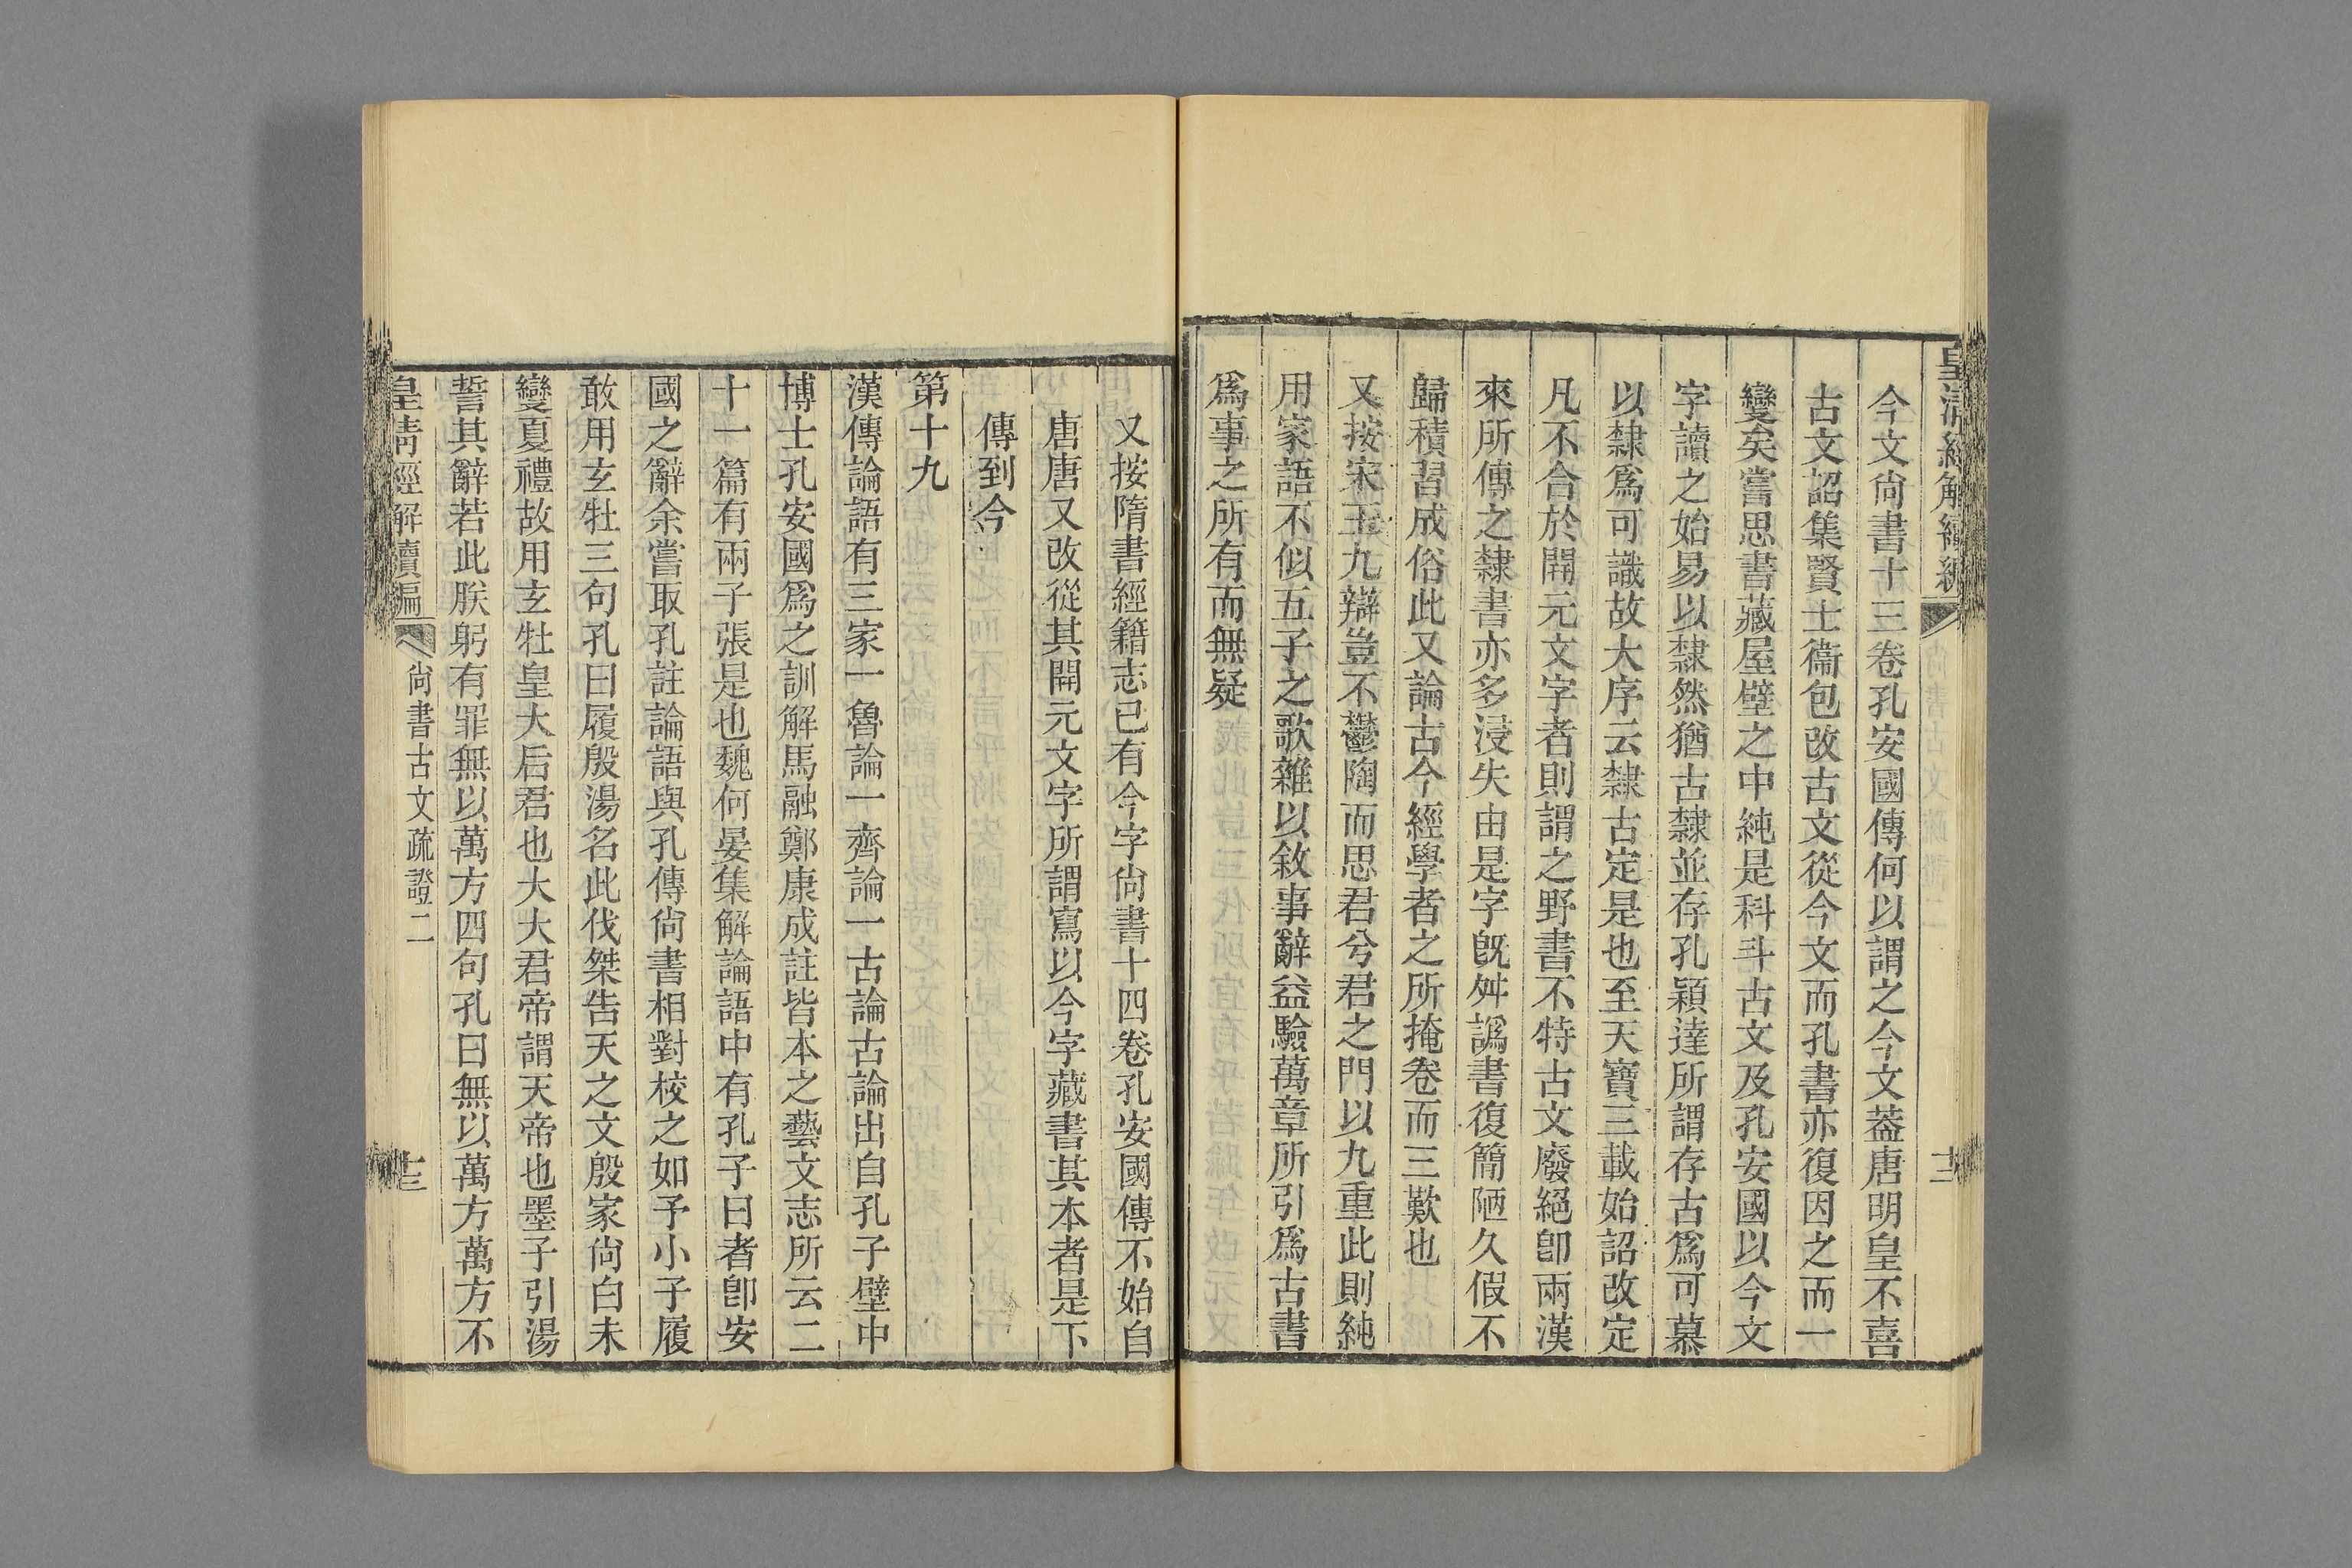 皇清經解續編
十二
今文尙書十三卷孔安國傳何以謂之今文葢唐明皇不喜
古文詔集賢士衞包改古文從今文而孔書亦復因之而一
變矣嘗思書藏屋壁之中純是科斗古文及孔安國以今文
字讀之始易以隸然猶古隸並存孔穎達所謂存古爲可慕
以隸爲可識故大序云隸古定是也至天寶三載始詔改定
凡不合於開元文字者則謂之野書不特古文廢絕卽兩漢
來所傳之隸書亦多浸失由是字旣舛譌書復簡陋久假不
歸積習成俗此又論古今經學者之所掩卷而三歎也
又按宋玉九辯豈不鬱陶而思君兮君之門以九重此則純
用家語不似五子之歌雜以敘事辭益驗萬章所引爲古書
爲事之所有而無疑
又按隋書經籍志已有今字尙書十四卷孔安國傳不始自
唐唐又改從其開元文字所謂寫以今字藏書其本者是下
傳到今
第十九
漢傳論語有三家一魯論一齊論一古論古論出自孔子壁中
博士孔安國爲之訓解馬融鄭康成註皆本之藝文志所云二
十一篇有兩子張是也魏何晏集解論語中有孔子曰者卽安
國之辭余嘗取孔註論語與孔傳尙書相對校之如予小子履
敢用玄牡三句孔曰履殷湯名此伐桀告天之文殷家尙白未
變夏禮故用玄牡皇大后君也大大君帝謂天帝也墨子引湯
誓其辭若此朕躬有罪無以萬方四句孔曰無以萬方萬方不
皇清經解續編
尙書古文疏證二
十三